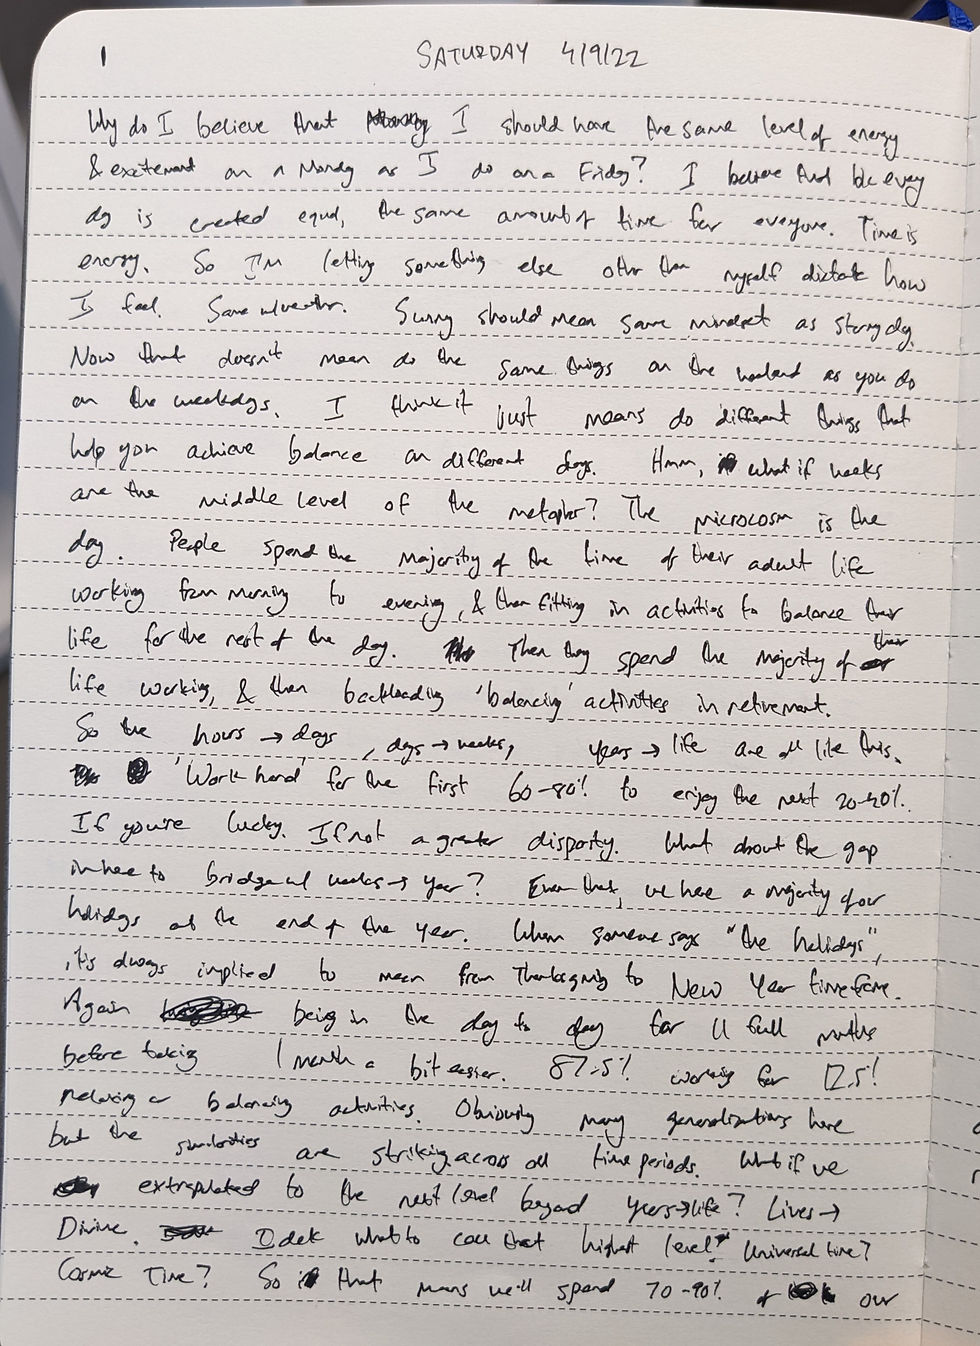 1 SATURDAY 4/9/22
Why do I believe that I should have the same level of energy
& excitement on a Monday as I do on a Friday? I believe that b/c every
day is created equal, the same amount of time for everyone. Time is
energy. So I'm letting something else other than myself dictate how
I feel. Same w/weather. Sunny should mean same mindset as stormy day.
Now that doesn't mean do the same things on the weekend as you do
on the weekdays. I think it just means do different things that
help you achieve balance on different days. Hmm, what if weeks
are the middle level of the metaphor? The microcosm is the
day. People spend the majority of the time of their adult life
working from morning to evening, & then fitting in activities to balance their
life for the rest of the day. Then they spend the majority of their
life working, & then backloading 'balancing' activities in retirement.
So the hours → days, days → weeks, years → life are all like this.
'Work hard' for the first 60-80% to enjoy the next 20-40%.
If you're lucky. If not a greater disparity. What about the gap
in here to bridge w/ weeks → year? Even that, we have a majority of our
holidays at the end of the year. When someone says "the holidays",
it's always implied to mean from Thanksgiving to New Year timeframe.
Again being in the day to day for 11 full months
before taking 1 month a bit easier. 87.5% working for 12.5%
relaxing or balancing activities. Obviously many generalizations here
but the similarities are striking across all time periods. What if we
extrapolated to the next level beyond years → life? Lives →
Divine. Idek what to call that highest level. Universal time?
Cosmic Time? So that means we'll spend 70-90% of our